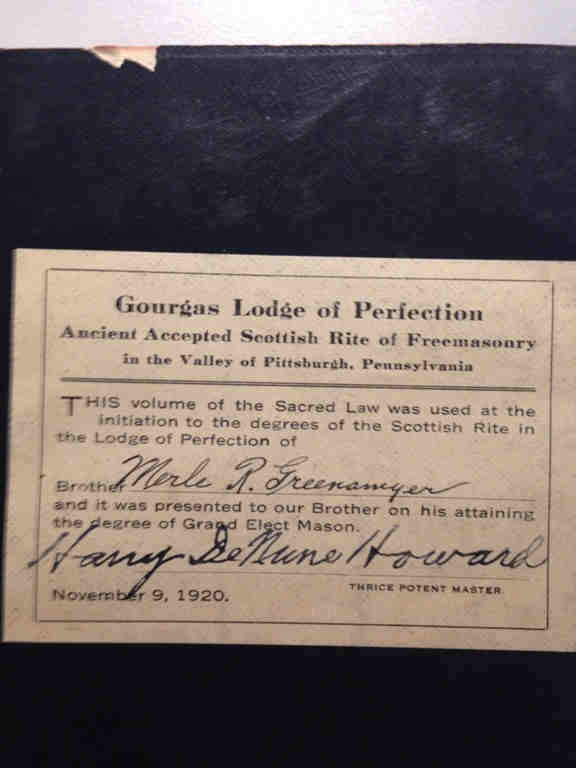 Gourgas Lodge of Perfection
Ancient Accepted Scottish Rite of Freemasonry
in the Valley of Pittsburgh, Pennsylvania
THIS volume of the Sacred Law was used at the
initiation to the degrees of the Scottish Rite in
the Lodge of Perfection of
Brother Merle R. Greenamyer
and it was presented to our Brother on his attaining
the degree of Grand Elect Mason.
Harry DeNune Howard
THRICE POTENT MASTER.
November 9, 1920.